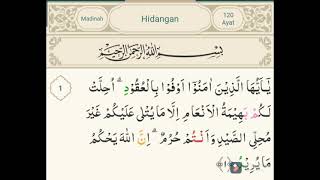 Madinah
Hidangan
120
Ayat
بِسْمِ اللّٰهِ الرَّحْمٰنِ الرَّحِيْمِ
1
يٰٓاَيُّهَا الَّذِيْنَ اٰمَنُوْٓا اَوْفُوْا بِالْعُقُوْدِۗ اُحِلَّتْ
لَكُمْ بَهِيْمَةُ الْاَنْعَامِ اِلَّا مَا يُتْلٰى عَلَيْكُمْ غَيْرَ
مُحِلِّى الصَّيْدِ وَاَنْتُمْ حُرُمٌۗ اِنَّ اللّٰهَ يَحْكُمُ
مَا يُرِيْدُ